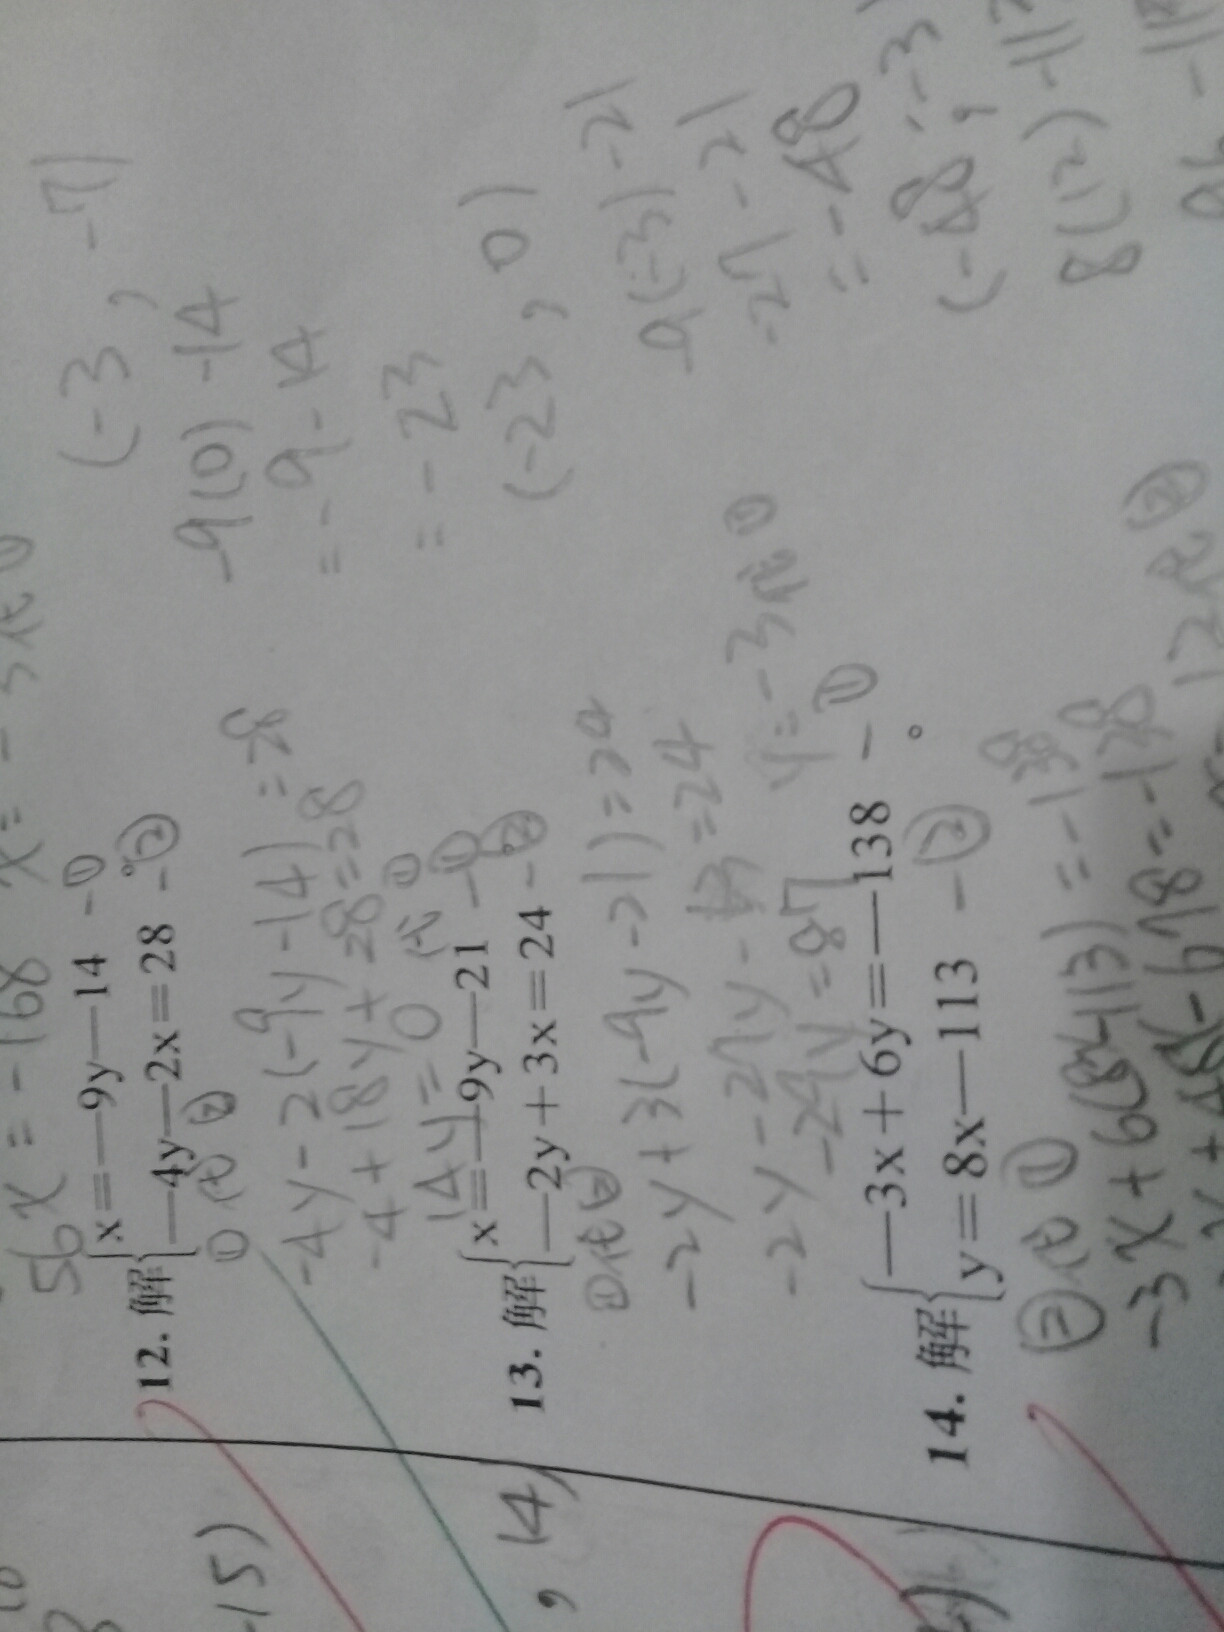 56x = -168 x = -3代①
(-3, -7)
12. 解{x=—9y—14 -①
—4y—2x=28 -②。
①代②
-4y - 2(-9y - 14) = 28
-4 + 18y + 28 = 28
14y = 0 代①
-9(0) -14
= -9 - 14
= -23
(-23, 0)
13. 解{x=—9y—21 -①
—2y+3x=24 -②
①代②
-2y + 3(-9y - 21) = 24
-2y - 27y - 63 = 24
-29y = 87
y = -3代①
-9(-3) -21
-27 - 21
= -48
(-48, -3)
14. 解{—3x+6y=—138 -①
y=8x—113 -②。
②代①
-3x + 6(8x-113) = -138
x + 48x - 678 = -138
12代②
8(12) -113
-15)
, 14)